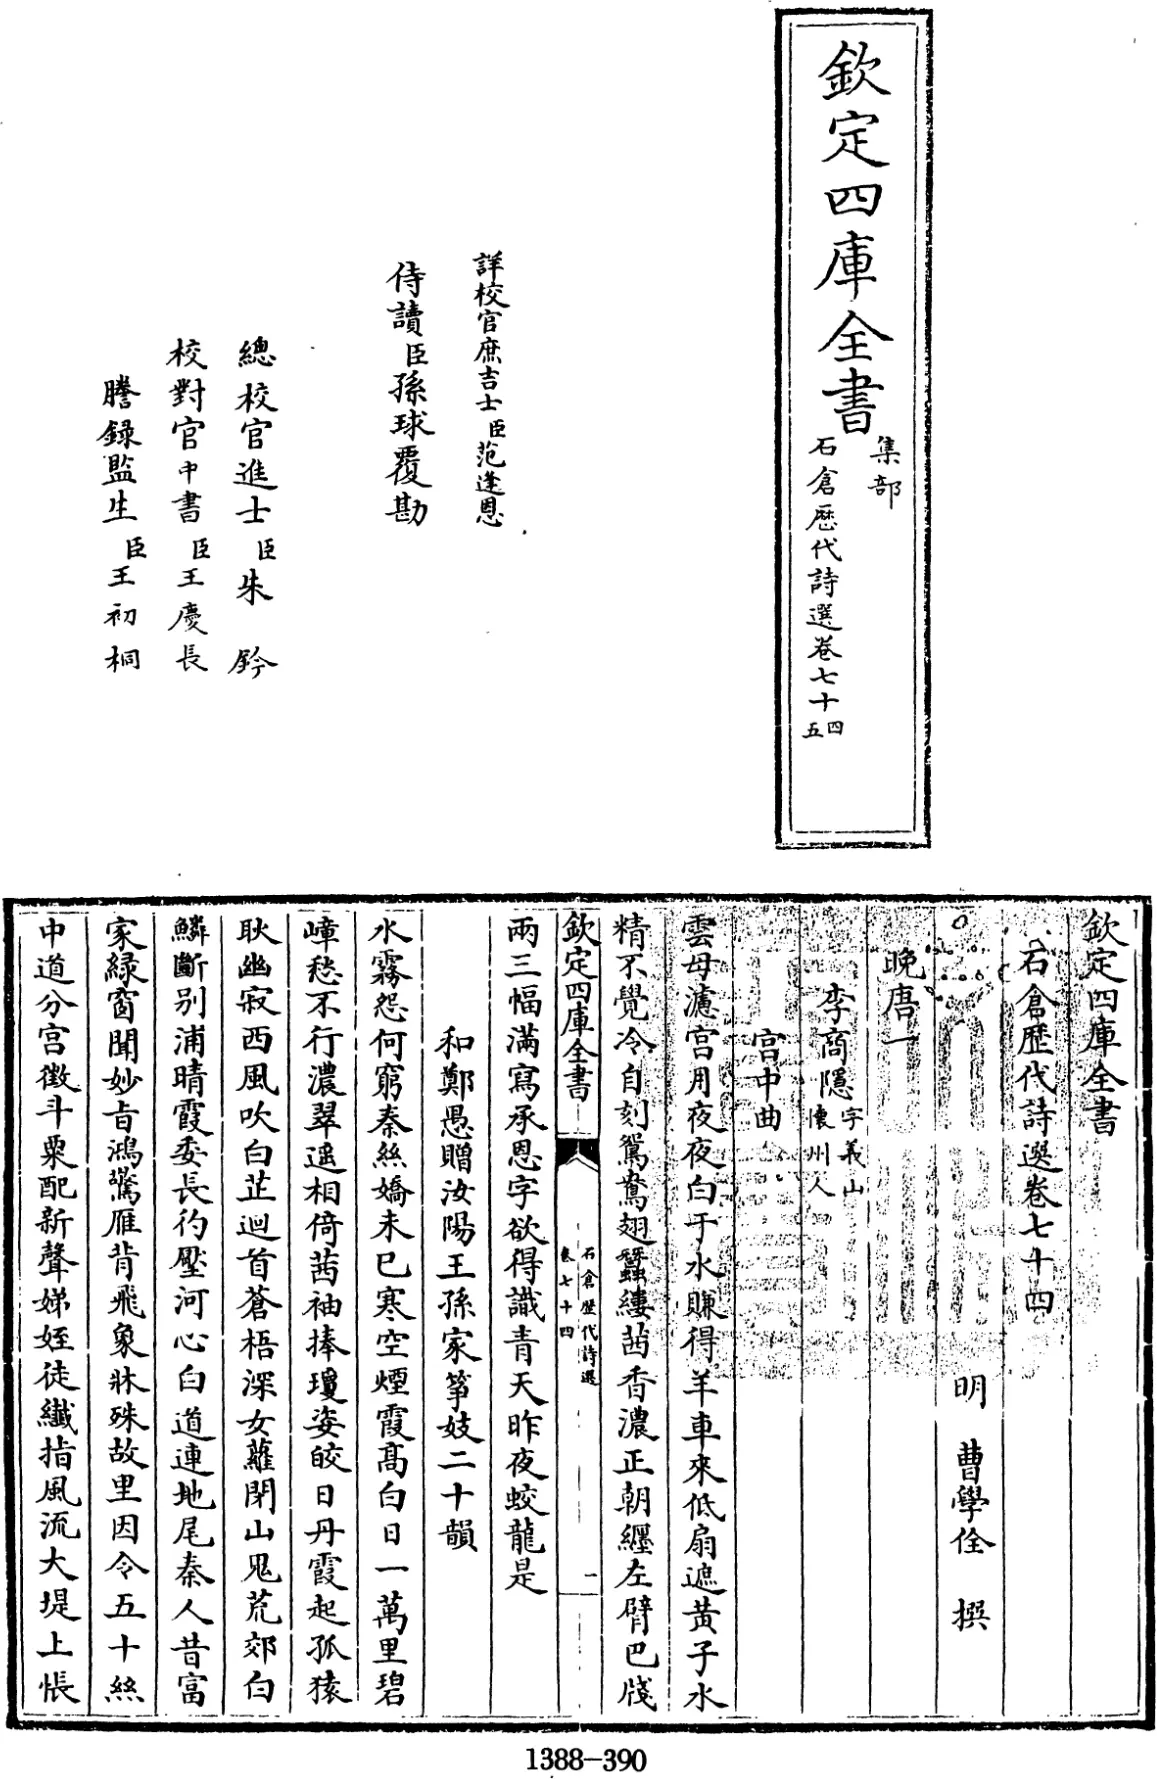 欽定四庫全書
集部
石倉歷代詩選卷七十四
五
詳校官庶吉士臣范逢恩
侍讀臣孫球覆勘
總校官進士臣朱鈐
校對官中書臣王慶長
謄錄監生臣王初桐
欽定四庫全書
石倉歷代詩選卷七十四
明 曹學佺 撰
晚唐一
李商隱字義山
懷州人
宮中曲
雲母濾宮月夜夜白于水賺得羊車來低扇遮黃子水
精不覺冷自刻鴛鴦翅蠶縷茜香濃正朝纏左臂巴牋
欽定四庫全書
石倉歷代詩選
卷七十四
一
兩三幅滿寫承恩字欲得識青天昨夜蛟龍是
和鄭愚贈汝陽王孫家箏妓二十韻
水霧怨何窮秦絲嬌未已寒空煙霞高白日一萬里碧
嶂愁不行濃翠遥相倚茜袖捧瓊姿皎日丹霞起孤猿
耿幽寂西風吹白芷迴首蒼梧深女蘿閉山鬼荒郊白
鱗斷别浦晴霞委長彴壓河心白道連地尾秦人昔富
家緑窗聞妙旨鴻驚雁背飛象牀殊故里因令五十絲
中道分宮徵斗粟配新聲娣姪徒纖指風流大堤上悵
1388-390